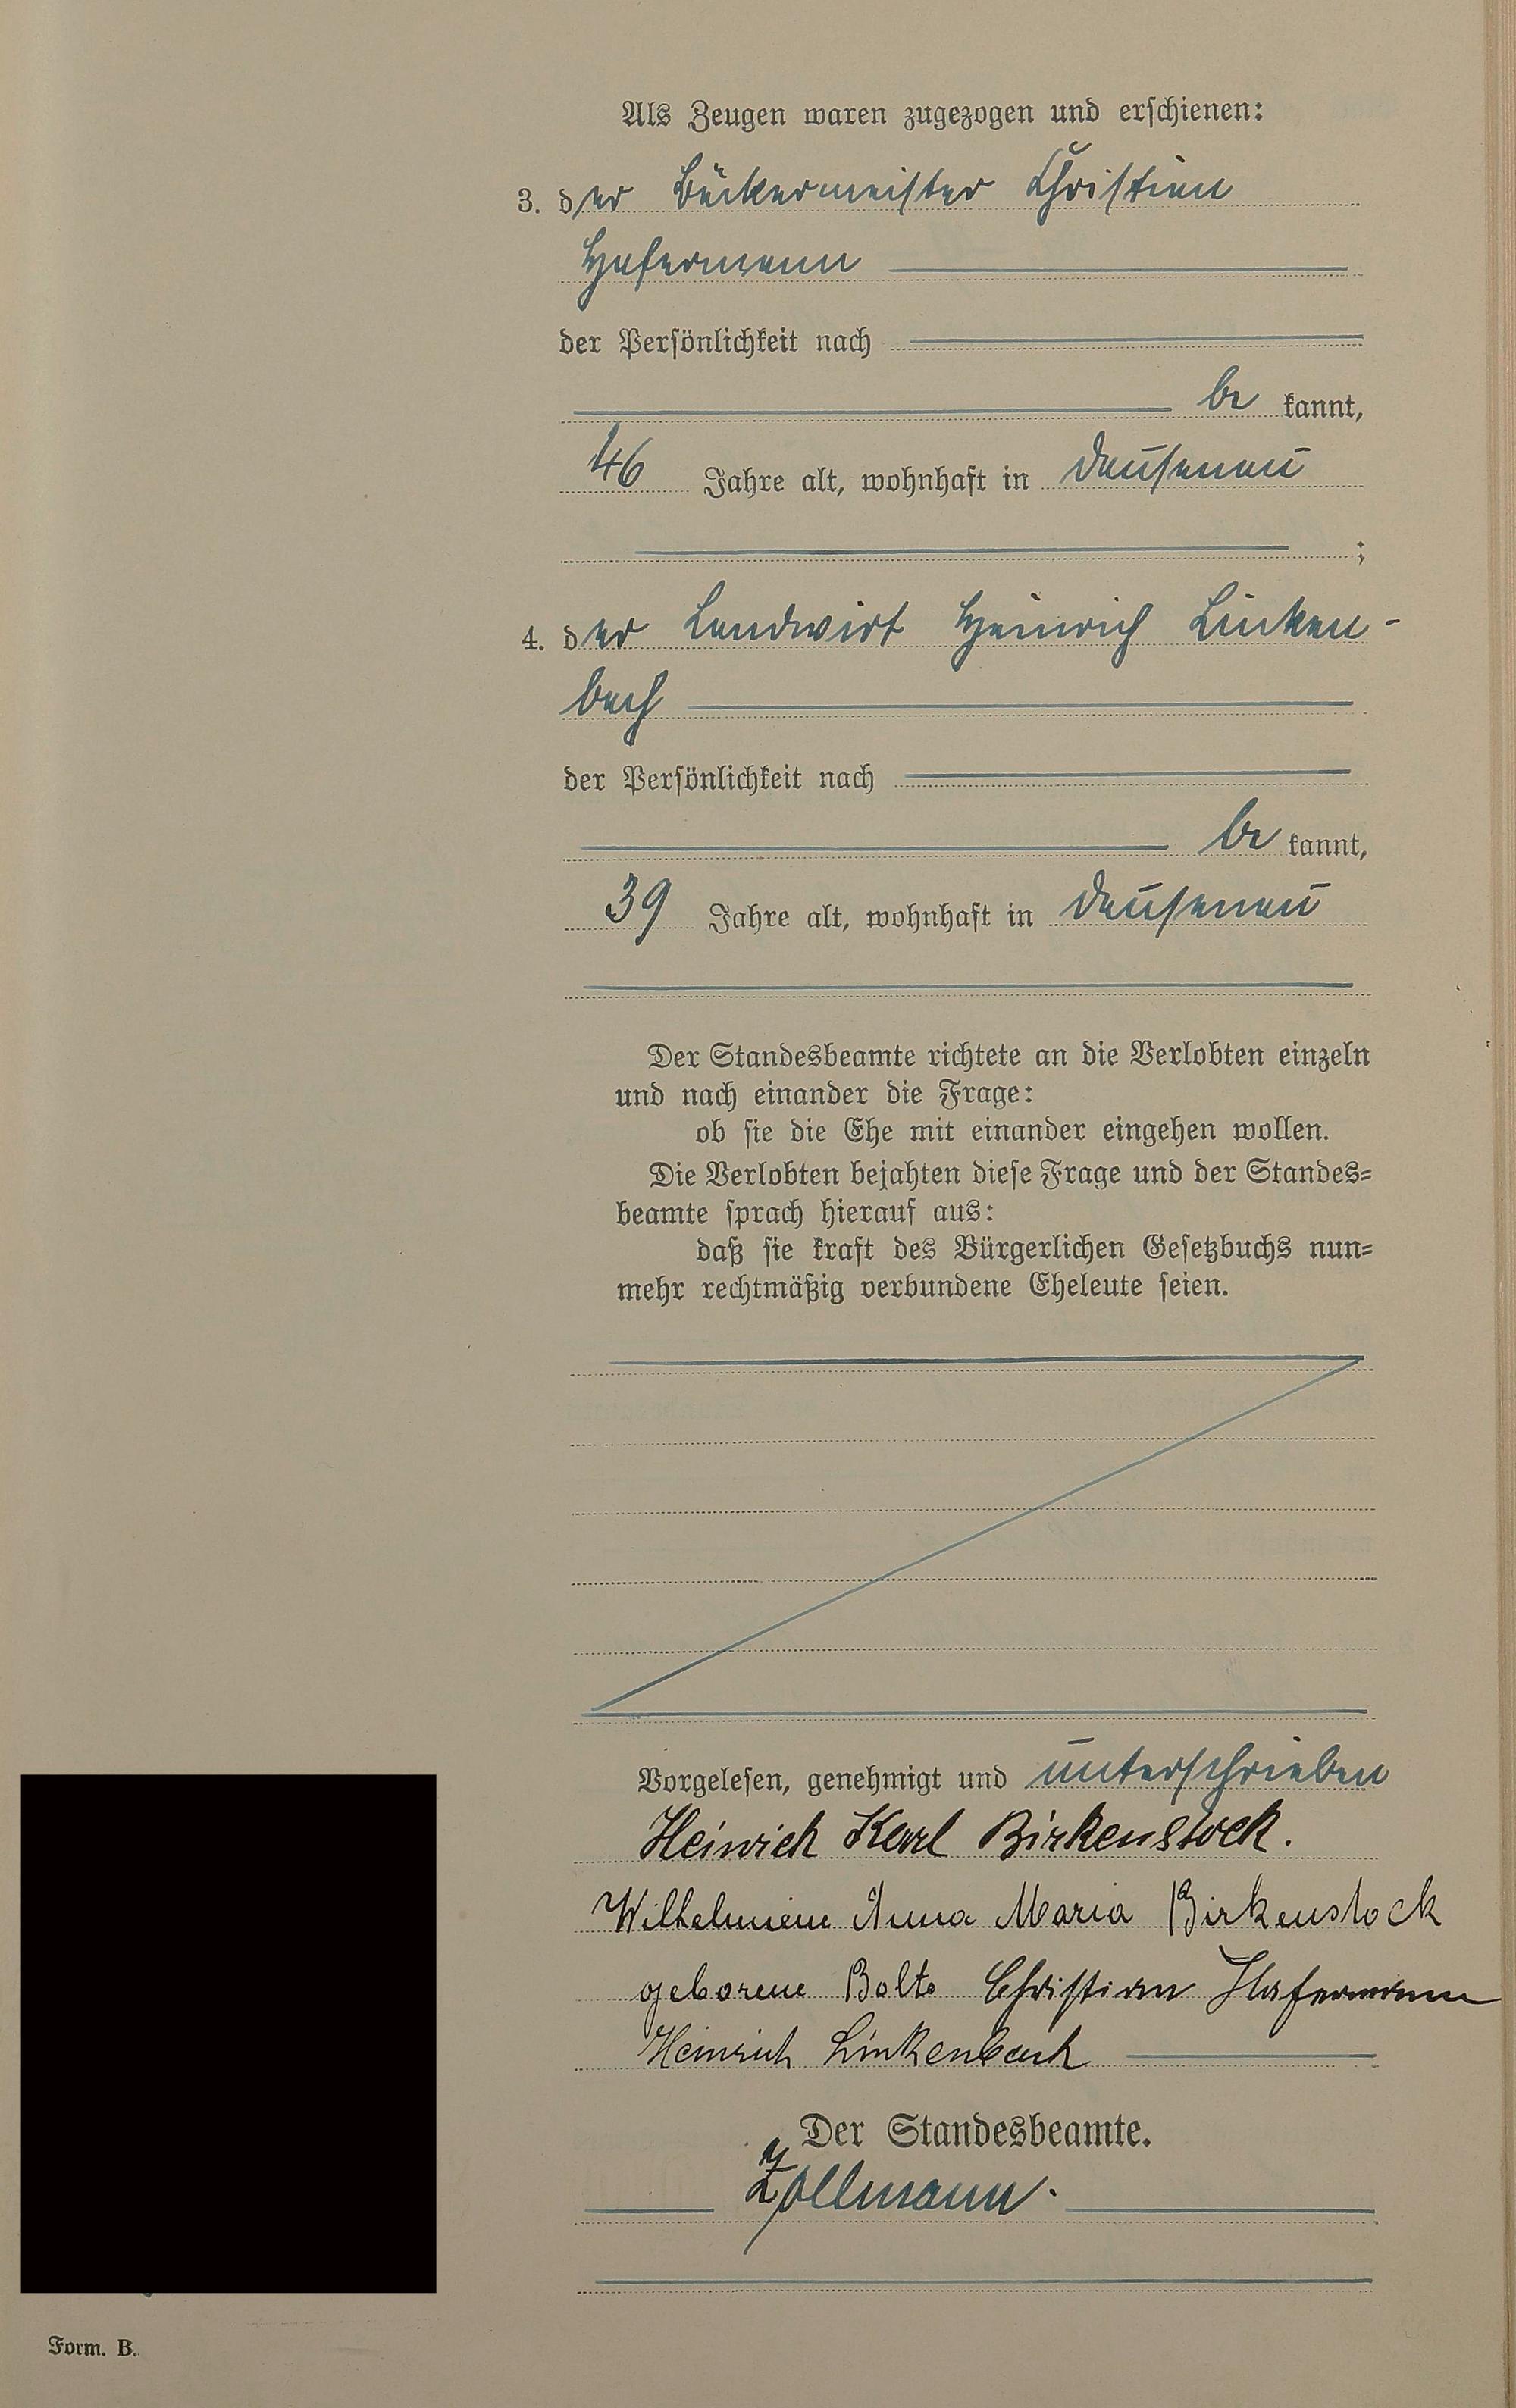 Als Zeugen waren zugezogen und erschienen:
3. der Bäckermeister Christian
Hafermann
der Persönlichkeit nach
be kannt,
46 Jahre alt, wohnhaft in Dausenau
;
4. der Landwirt Heinrich Linken-
bach
der Persönlichkeit nach
be kannt,
39 Jahre alt, wohnhaft in Dausenau
Der Standesbeamte richtete an die Verlobten einzeln
und nach einander die Frage:
ob sie die Ehe mit einander eingehen wollen.
Die Verlobten bejahten diese Frage und der Standes-
beamte sprach hierauf aus:
daß sie kraft des Bürgerlichen Gesetzbuchs nun-
mehr rechtmäßig verbundene Eheleute seien.
Vorgelesen, genehmigt und unterschrieben
Heinrich Karl Birkenstock.
Wilhelmine Anna Maria Birkenstock
geborene Bolte Christian Hafermann
Heinrich Linkenbach
Der Standesbeamte.
Zollmann.
Form. B.